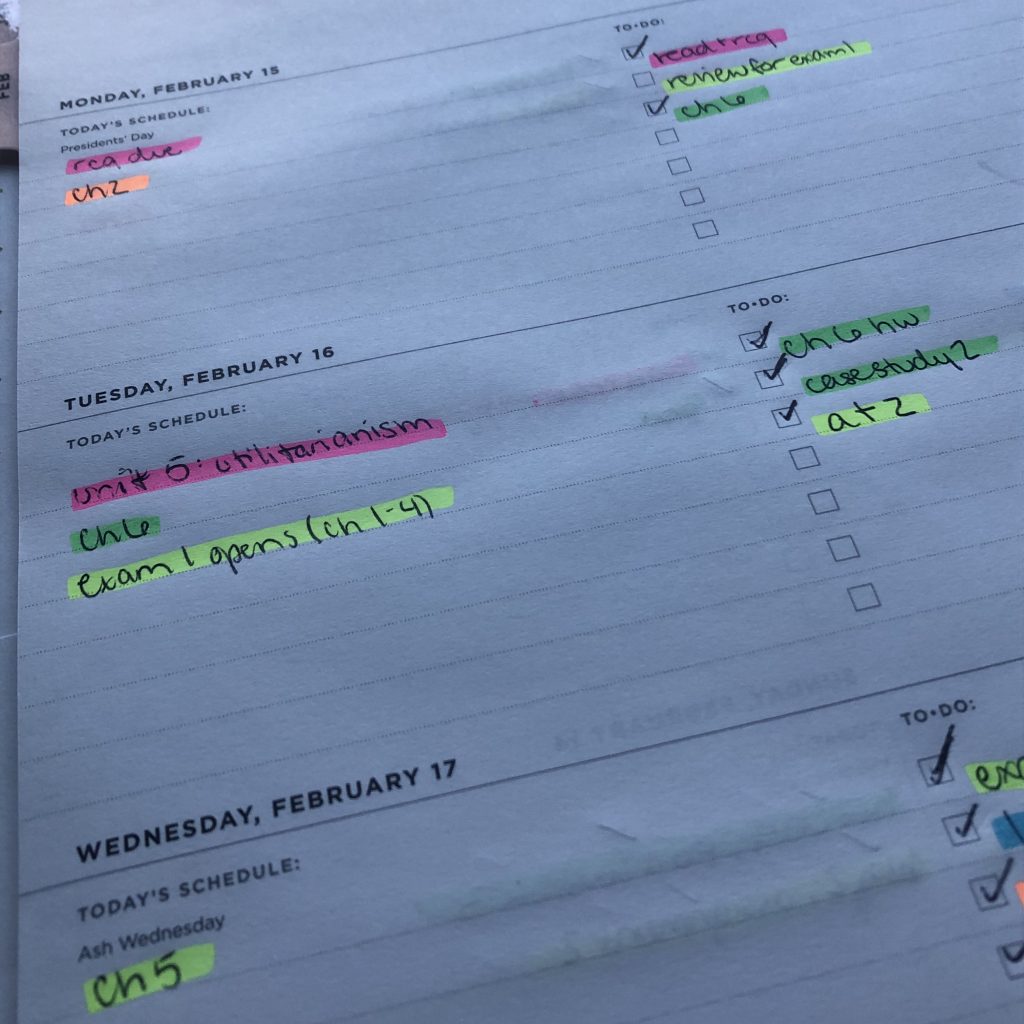 FEB
MONDAY, FEBRUARY 15
TODAY'S SCHEDULE:
Presidents' Day
rcq due
ch 2
TO•DO:
read + rcq
review for exam 1
ch 6
TUESDAY, FEBRUARY 16
TODAY'S SCHEDULE:
unit 5: utilitarianism
ch 6
exam 1 opens (ch 1-4)
TO•DO:
ch 6 hw
case study 2
a + 2
WEDNESDAY, FEBRUARY 17
TODAY'S SCHEDULE:
Ash Wednesday
ch 5
TO•DO: